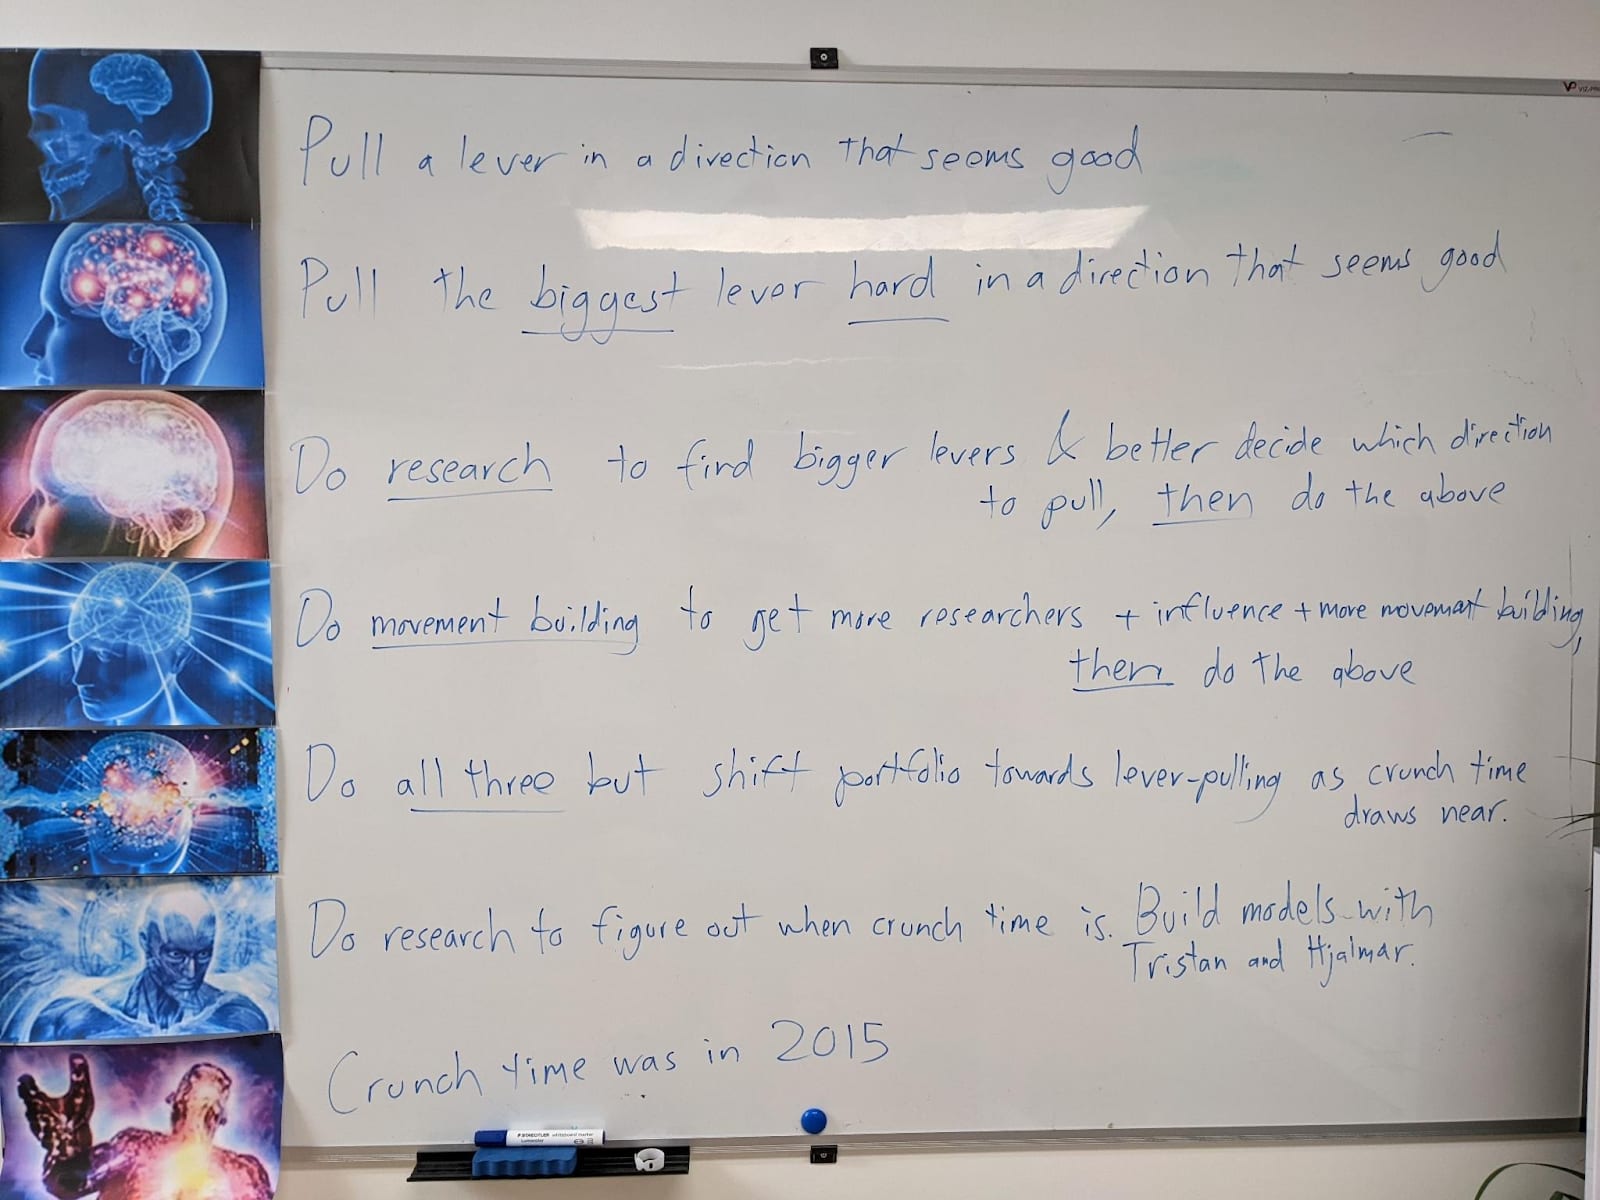 Pull a lever in a direction that seems good
Pull the biggest lever hard in a direction that seems good
Do research to find bigger levers & better decide which direction
to pull, then do the above
Do movement building to get more researchers + influence + more movement building,
then do the above
Do all three but shift portfolio towards lever-pulling as crunch time
draws near.
Do research to figure out when crunch time is. Build models with
Tristan and Hjalmar.
Crunch time was in 2015
STAEDTLER whiteboard marker
Lumocolor